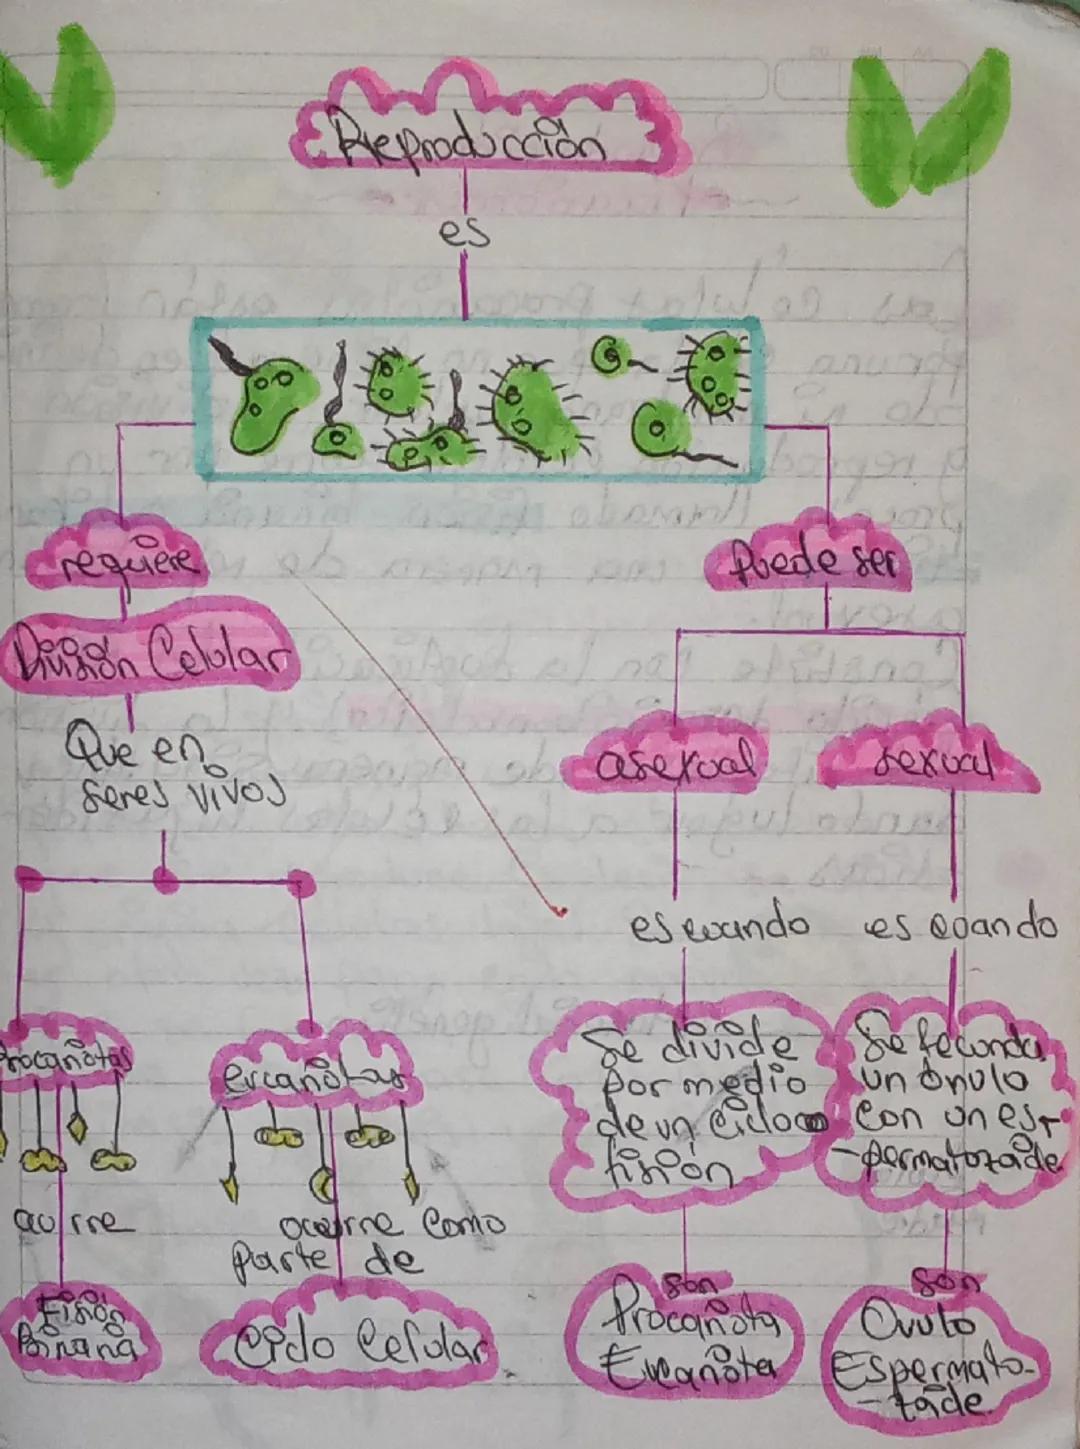 Reproducción
es
requiere
División Celular
Que en
seres vivos
Procañotas
ocurre
Fisión
Binaria
ercañotas
ocurre como
parte de
Ciclo Celular
Puede ser
asexual
es cuando
Se divide
por medio
de un Ciclo o
fisión
son
Procañota
Eucañota
sexual
es cuando
Se fecunda
un óvulo
con un es-
-permatozoide
son
Ovulo
Espermato-
-zoide.